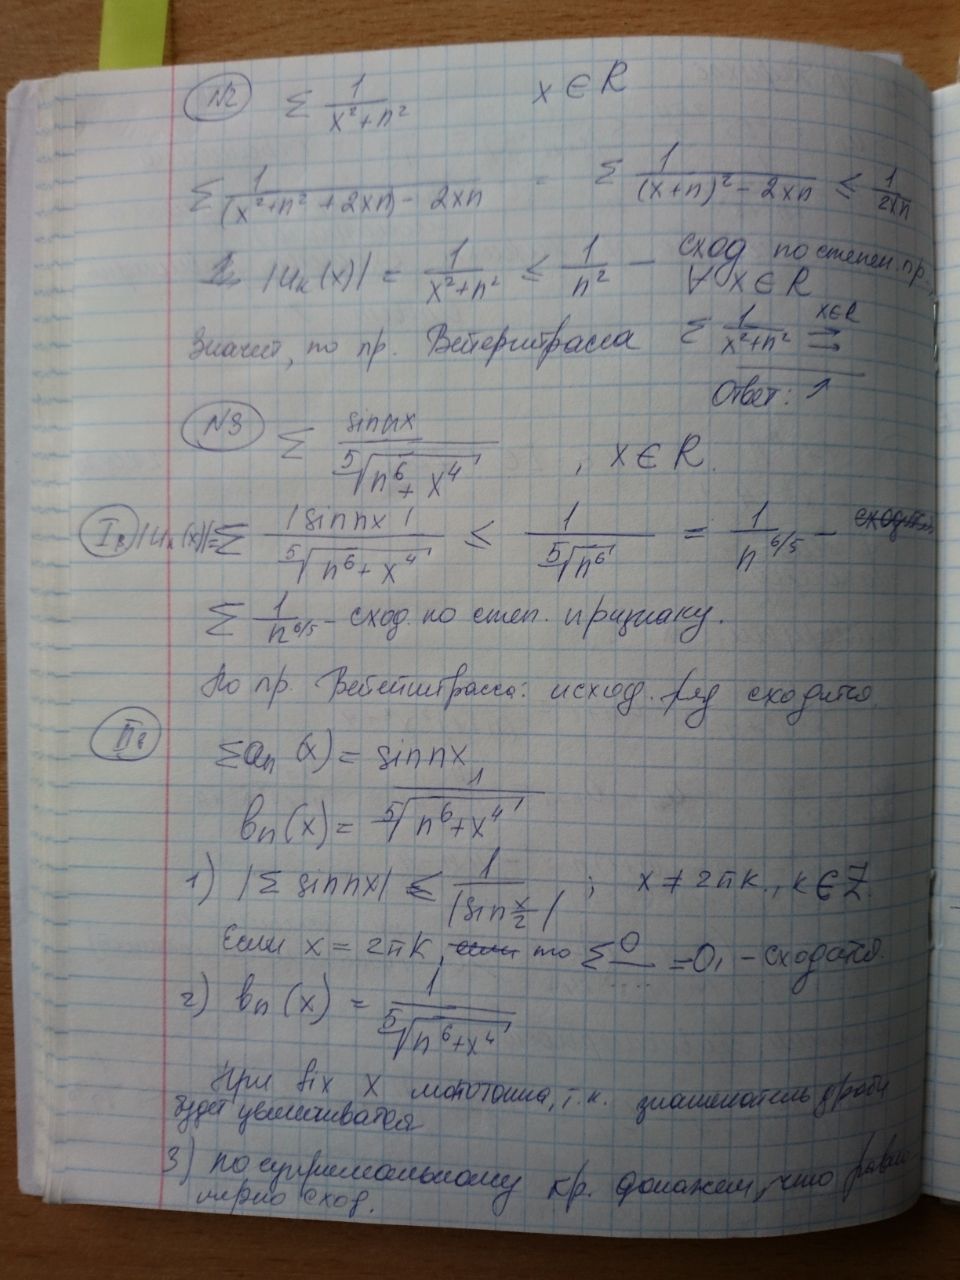 N2 Σ 1/(x²+n²) x ∈ R
Σ 1/((x²+n²+2xn) - 2xn) = Σ 1/((x+n)² - 2xn) ≤ 1/(2xn)
|Uₙ(x)| = 1/(x²+n²) ≤ 1/n² — сход по степен. пр. ∀ x ∈ R
Значит, по пр. Σ 1/(x²+n²) ⇉ x∈R
Ответ: ↑
N3 Σ sin nx / ⁵√(n⁶+x⁴), x ∈ R.
Iв |Uₙ(x)|= Σ |sin nx| / ⁵√(n⁶+x⁴) ≤ 1/⁵√(n⁶) = 1/n^(6/5) —
Σ 1/n^(6/5) – сход. по степ. признаку.
По пр. исход. ряд сходится
IIв
Σaₙ(x) = sin nx
вₙ(x) = 1/⁵√(n⁶+x⁴)
1) |Σ sin nx| ≤ 1/|sin x/2| ; x ≠ 2πk, k ∈ Z.
Если x = 2πk, то Σ 0/.... = 0, – сходится.
2) вₙ(x) = 1/⁵√(n⁶+x⁴)
При fix x монотонна, т.к. знаменатель дроби
будет увеличиватся
3) по супремальному кр. докажем, что равно-
мерно сход.